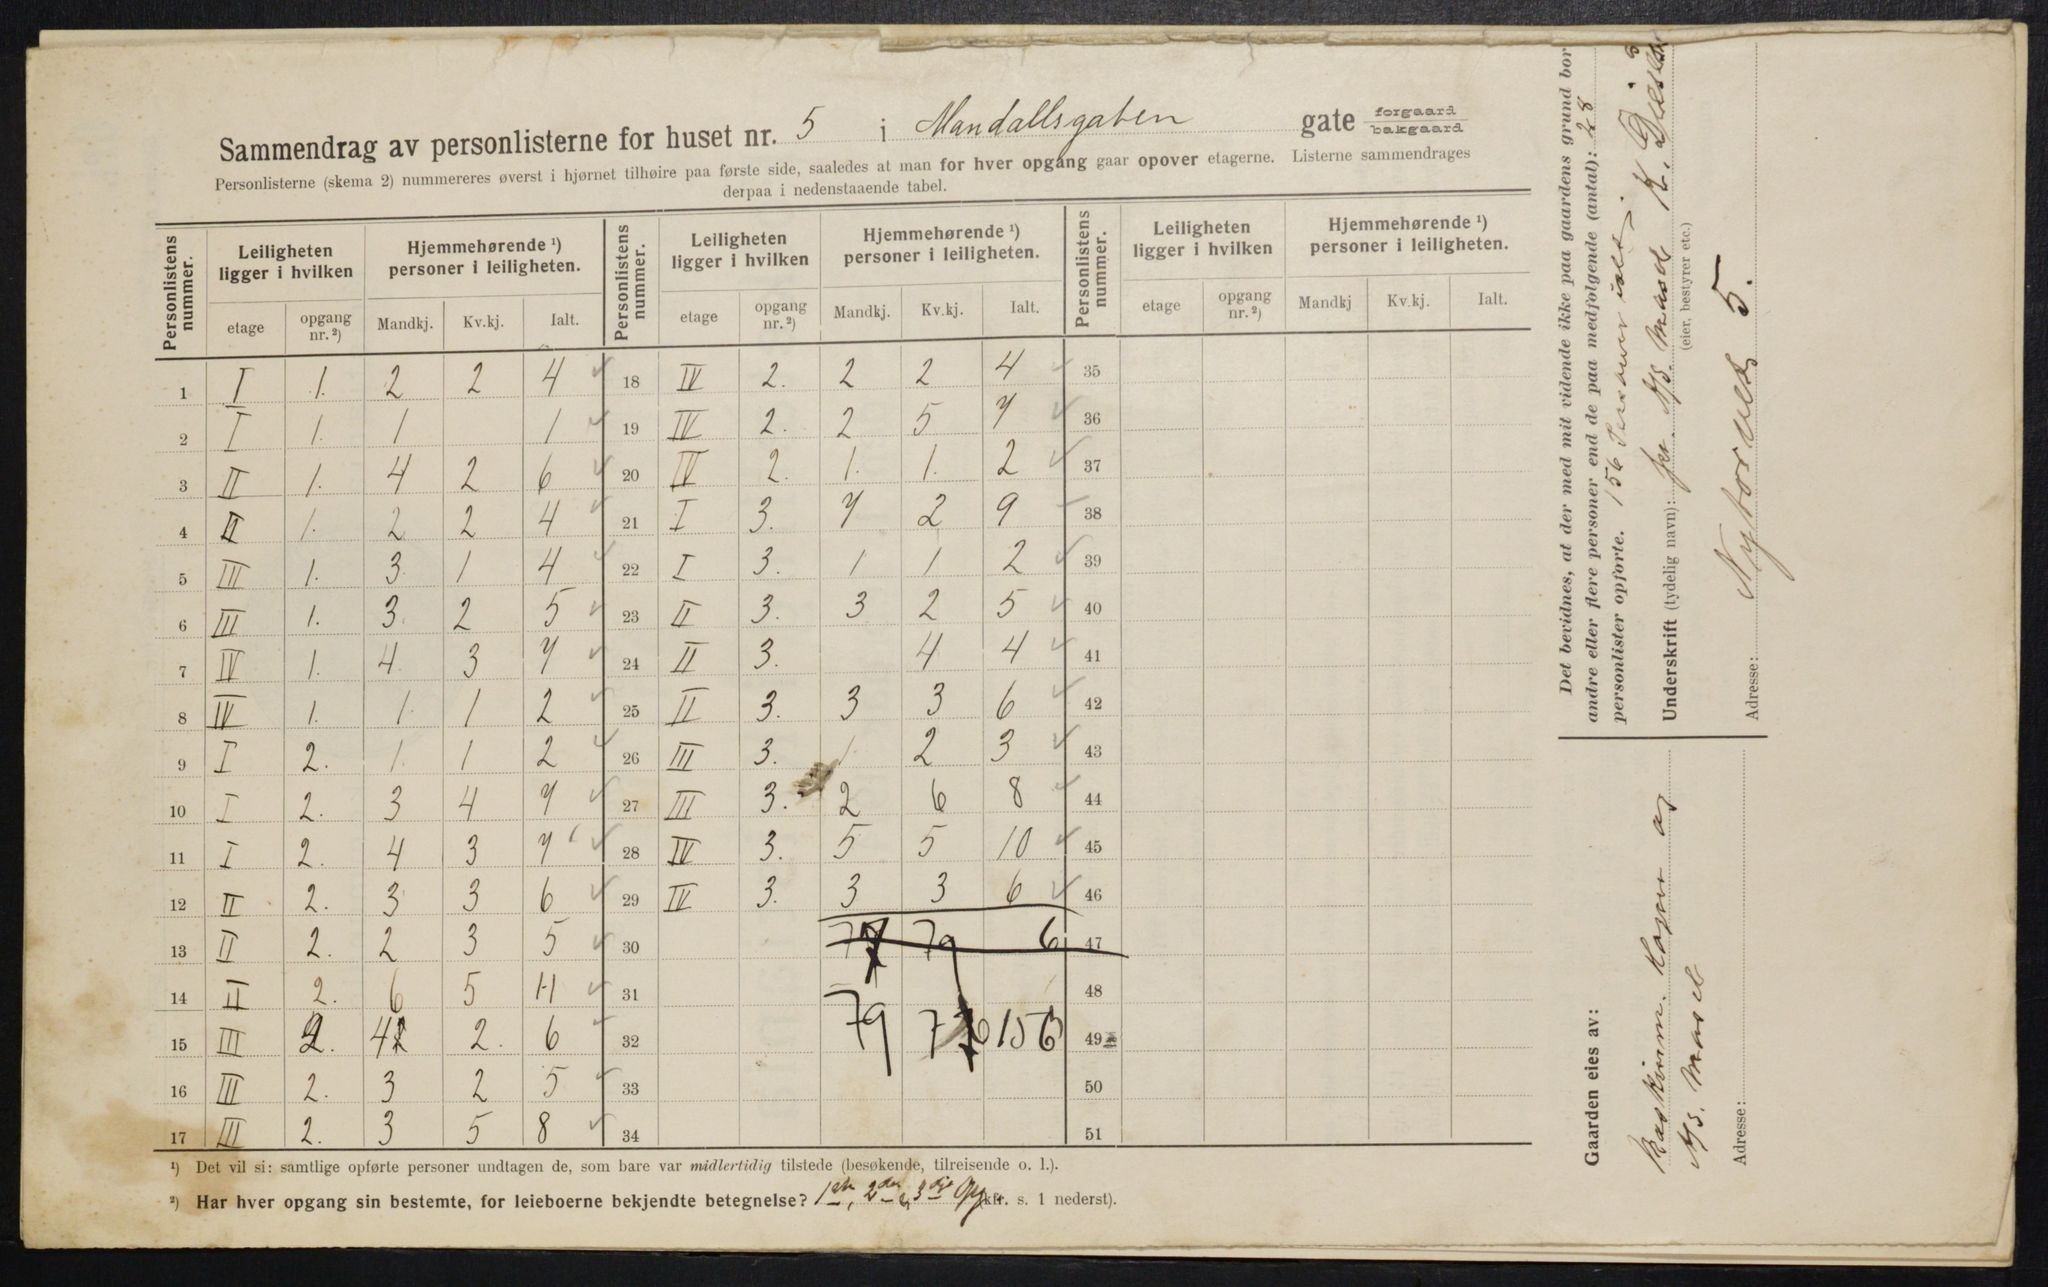 Sammendrag av personlisterne for huset nr. 5 i Mandallsgaten gate forgaard bakgaard
Personlisterne (skema 2) nummereres øverst i hjørnet tilhøire paa første side, saaledes at man for hver opgang gaar opover etagerne. Listerne sammendrages
derpaa i nedenstaaende tabel.
Personlistens nummer. Leiligheten ligger i hvilken Hjemmehørende ¹) personer i leiligheten. Personlistens nummer. Leiligheten ligger i hvilken Hjemmehørende ¹) personer i leiligheten. Personlistens nummer. Leiligheten ligger i hvilken Hjemmehørende ¹) personer i leiligheten.
etage opgang nr. ²) Mandkj. Kv.kj. Ialt. etage opgang nr. ²) Mandkj. Kv.kj. Ialt. etage opgang nr. ²) Mandkj Kv.kj. Ialt.
1 I 1. 2 2 4 18 IV 2. 2 2 4 35
2 I 1. 1 1 19 IV 2. 2 5 7 36
3 II 1. 4 2 6 20 IV 2. 1. 1. 2 37
4 II 1. 2 2 4 21 I 3. 7 2 9 38
5 III 1. 3 1 4 22 I 3. 1 1 2 39
6 III 1. 3 2 5 23 II 3. 3 2 5 40
7 IV 1. 4 3 7 24 II 3. 4 4 41
8 IV 1. 1 1 2 25 II 3. 3 3 6 42
9 I 2. 1 1 2 26 III 3. 1 2 3 43
10 I 2. 3 4 7 27 III 3. 2 6 8 44
11 I 2. 4 3 7 28 IV 3. 5 5 10 45
12 II 2. 3 3 6 29 IV 3. 3 3 6 46
13 II 2. 2 3 5 30 77 79 6 47
14 II 2. 6 5 11 31 48
15 III 2. 4 2. 6 32 79 77 156 49
16 III 2. 3 2 5 33 50
17 III 2. 3 5 8 34 51
¹) Det vil si: samtlige opførte personer undtagen de, som bare var midlertidig tilstede (besøkende, tilreisende o. l.).
²) Har hver opgang sin bestemte, for leieboerne bekjendte betegnelse? 1ste, 2den, 3dje Opg (kfr. s. 1 nederst).
Det bevidnes, at der med mit vidende ikke paa gaardens grund bor
andre eller flere personer end de paa medfølgende (antal): 28
personlister opførte. 156 Personer ialt.
Underskrift (tydelig navn): for A/S. Maset K.
(eier, bestyrer etc.)
Adresse: Nytorvet 5.
Gaarden eies av:
A/S. Maset
Adresse: